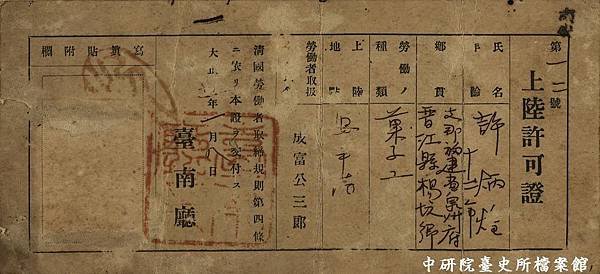 上陸許可證
第一二號
氏名
許炳
年齡
鄉貫
支那福建省泉州府
晋江縣楊坑鄉
勞働ノ種類
菓子工
上陸地點
安平港
勞働者取扱
成富公三郎
清國勞働者取締規則第四條
ニ依リ本證ヲ交付ス
大正 年一月 日
臺南廳
寫眞貼附欄
中研院臺史所檔案館